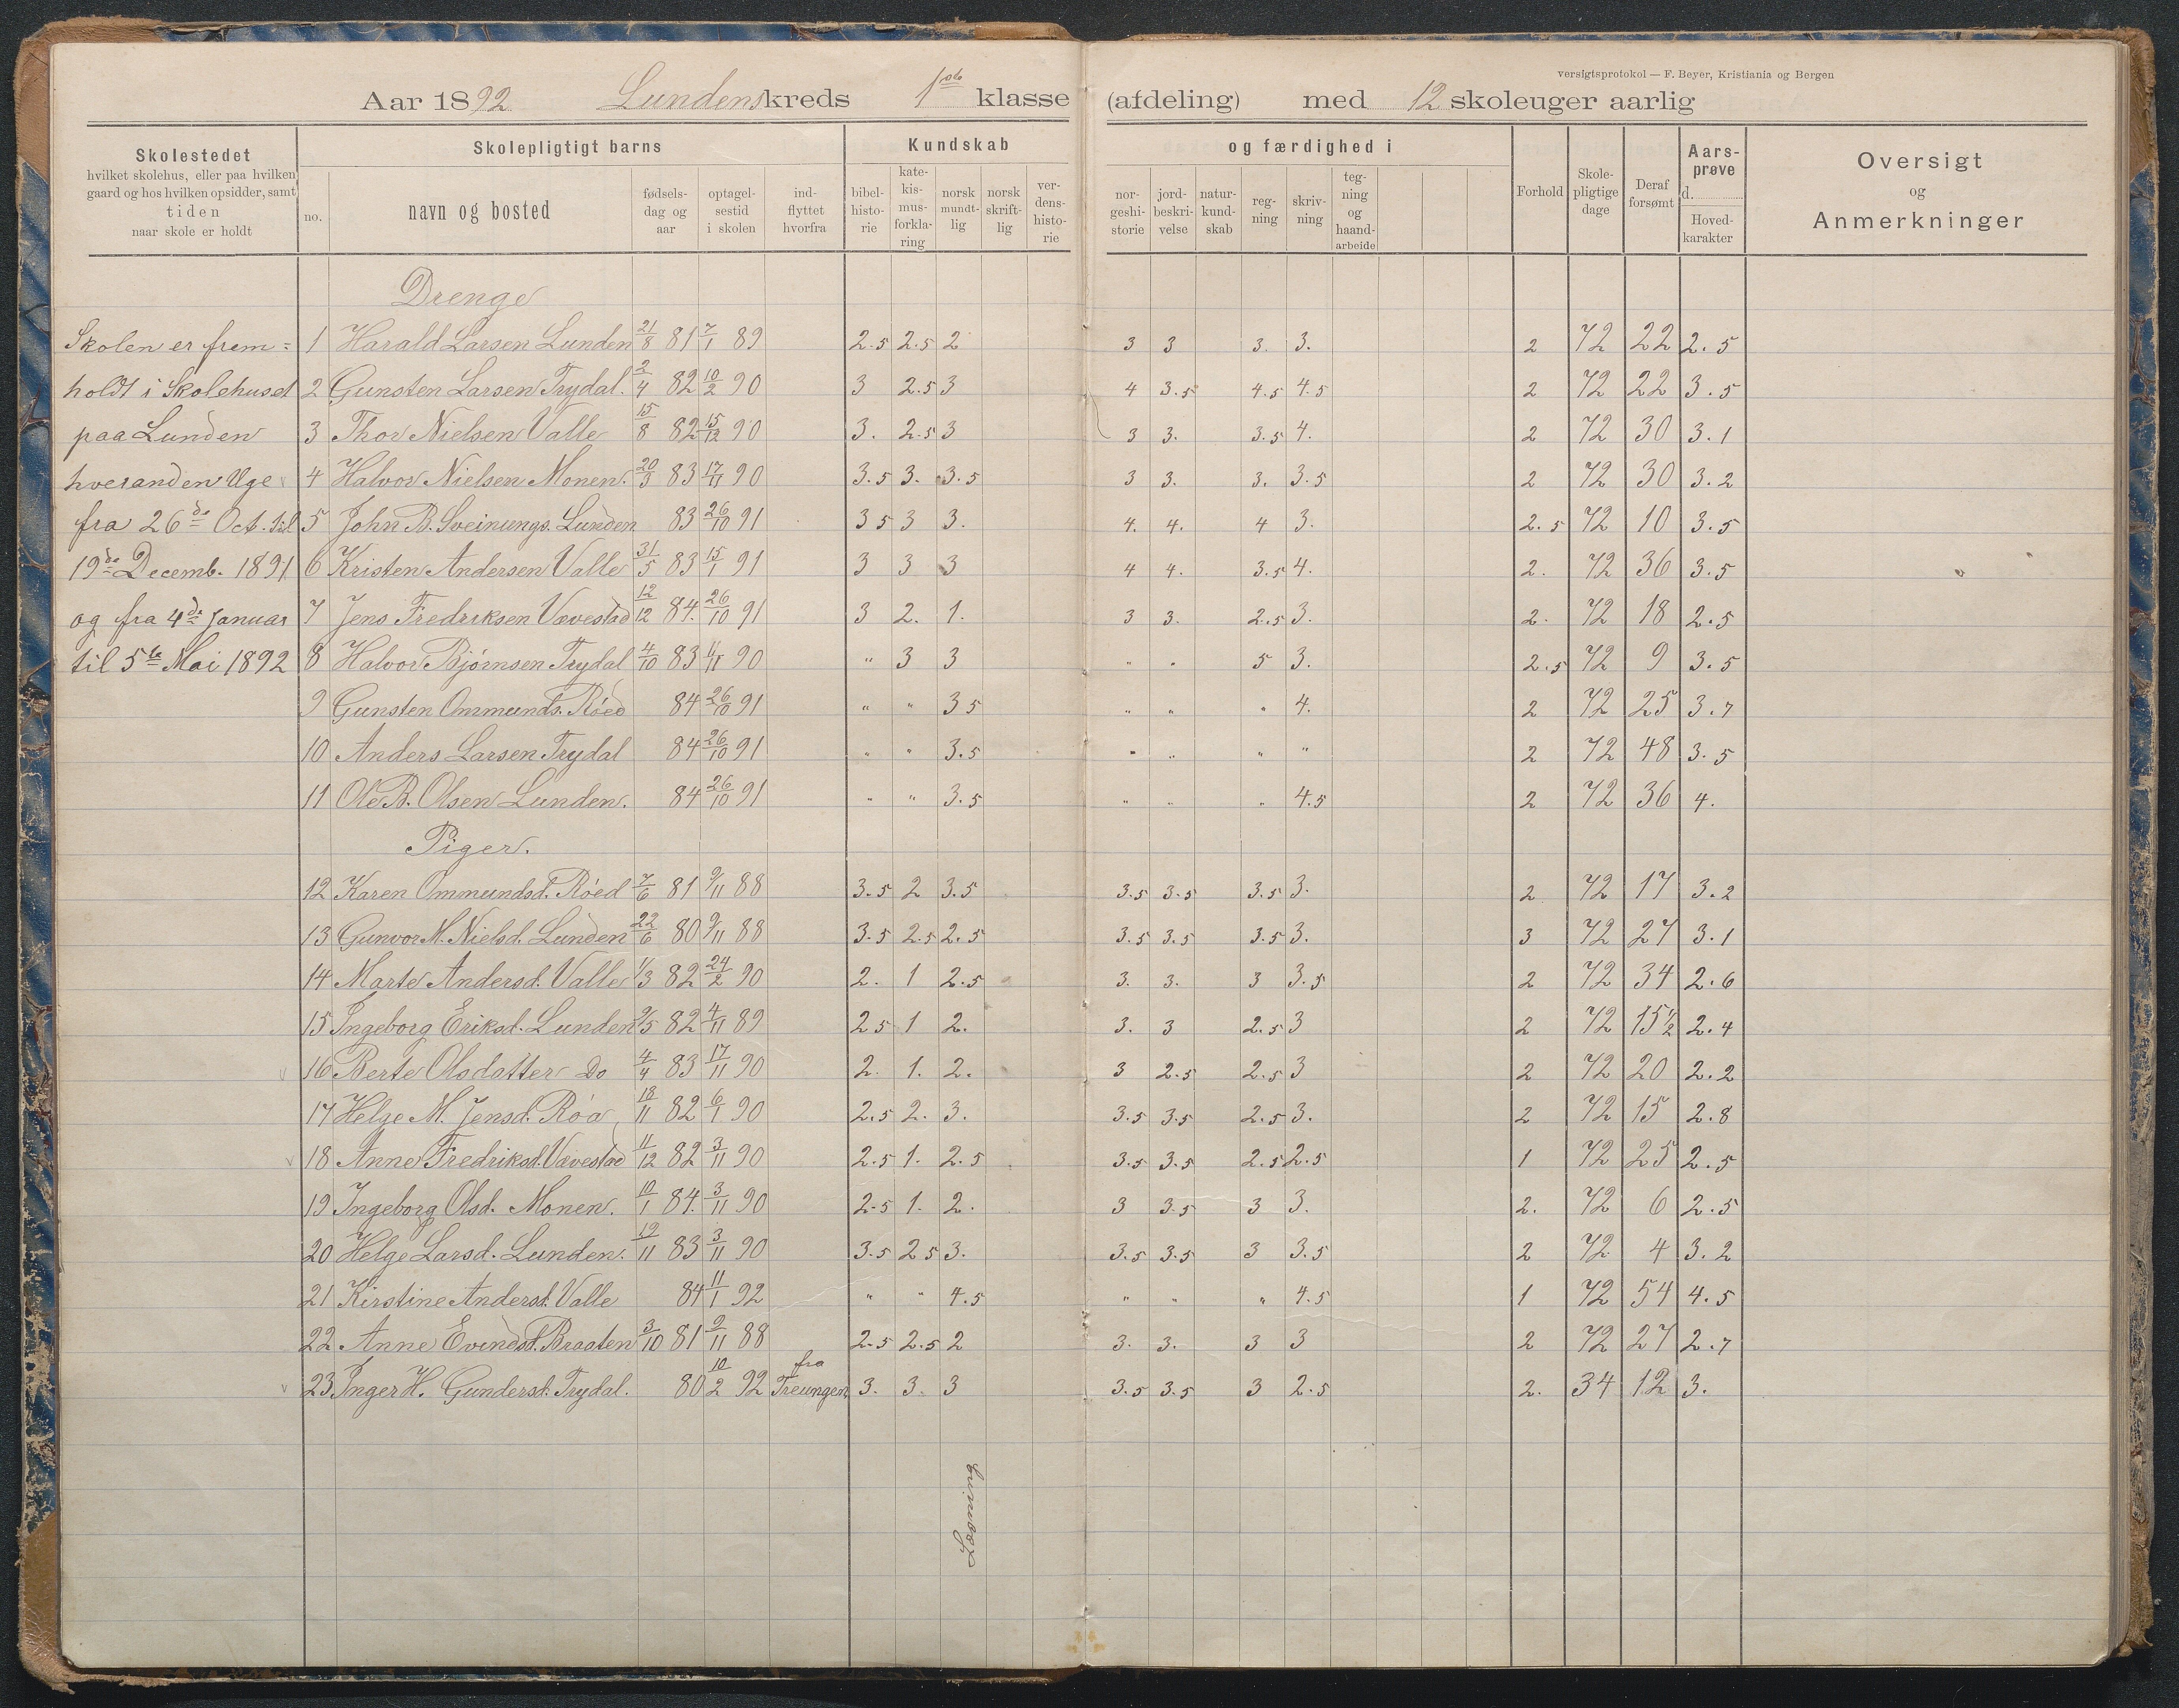 versigtsprotokol — F. Beyer, Kristiania og Bergen
Aar 1892 Lundens kreds 1ste klasse (afdeling) med 12 skoleuger aarlig
Skolestedet
hvilket skolehus, eller paa hvilken
gaard og hos hvilken opsidder, samt
tiden
naar skole er holdt
Skolepligtigt barns
no.
navn og bosted
fødsels-
dag og
aar
optagel-
sestid
i skolen
ind-
flyttet
hvorfra
Kundskab
bibel-
histo-
rie
kate-
kis-
mus-
forkla-
ring
norsk
mundt-
lig
norsk
skrift-
lig
ver-
dens-
histo-
rie
og færdighed i
nor-
geshi-
storie
jord-
beskri-
velse
natur-
kund-
skab
reg-
ning
skriv-
ning
teg-
ning
og
haand-
arbeide
Forhold
Skole-
pligtige
dage
Deraf
forsømt
Aars-
prøve
d.
Hoved-
karakter
Oversigt
og
Anmerkninger
Drenge
Skolen er frem=
holdt i Skolehuset
paa Lunden
hveranden Uge
fra 26de Oct. til
19de Decemb. 1891
og fra 4de Januar
til 5te Mai 1892
1 Harald Larsen Lunden 21/8 81 7/1 89 2.5 2.5 2 3 3 3. 3. 2 72 22 2.5
2 Gunsten Larsen Trydal. 2/4 82 10/2 90 3 2.5 3 4 3.5 4.5 4.5 2 72 22 3.5
3 Thor Nielsen Valle 15/8 82 15/12 90 3. 2.5 3 3 3. 3.5 4. 2 72 30 3.1
4 Halvor Nielsen Monen. 20/3 83 17/11 90 3.5 3. 3.5 3 3. 3. 3.5 2 72 30 3.2
5 John B. Sveinungs. Lunden 83 26/10 91 3 5 3 3. 4. 4. 4 3. 2.5 72 10 3.5
6 Kristen Andersen Valle 31/5 83 15/1 91 3 3 3 4 4. 3.5 4. 2. 72 36 3.5
7 Jens Fredriksen Vævestad 12/12 84. 26/10 91 3 2. 1. 3 3. 2.5 3. 2. 72 18 2.5
8 Halvor Bjørnsen Trydal 4/10 83 11/11 90 " 3 3 " " 5 3. 2.5 72 9 3.5
9 Gunsten Ommunds. Røed 84 26/10 91 " " 3 5 " " " 4. 2 72 25 3.7
10 Anders Larsen Trydal 84 26/10 91 " " 3.5 " " " " 2 72 48 3.5
11 Ole B. Olsen Lunden. 84 26/10 91 " " 3.5 " " " 4.5 2 72 36 4.
Piger.
12 Karen Ommundsd. Røed 7/6 81 9/11 88 3.5 2 3.5 3.5 3.5 3.5 3. 2 72 17 3.2
13 Gunvor M. Nielsd. Lunden 22/6 80 9/11 88 3.5 2.5 2.5 3.5 3.5 3.5 3. 3 72 27 3.1
14 Marte Andersd. Valle 1/3 82 24/2 90 2. 1 2.5 3. 3. 3 3.5 2 72 34 2.6
15 Ingeborg Eriksd. Lunden 9/5 82 4/11 89 2 5 1 2. 3. 3 2.5 3 2 72 15 1/2 2.4
16 Berte Olsdatter Do 4/4 83 17/11 90 2. 1. 2. 3 2.5 2.5 3 2 72 20 2.2
17 Helge M. Jensd. Røa 18/11 82 6/1 90 2.5 2. 3. 3.5 3.5 2.5 3. 2 72 15 2.8
18 Anne Fredriksd. Vævestad 11/12 82 3/11 90 2.5 1. 2.5 3.5 3.5 2.5 2.5 1 72 25 2.5
19 Ingeborg Olsd. Monen. 10/1 84. 3/11 90 2.5 1. 2. 3 3.5 3 3. 2. 72 6 2.5
20 Helge Larsd. Lunden. 19/11 83 3/11 90 3.5 2 5 3. 3.5 3.5 3 3.5 2 72 4 3.2
21 Kirstine Andersd. Valle 84 11/1 92 " " 4.5 " " " 4.5 1 72 54 4.5
22 Anne Evendsd. Braaten 3/10 81 9/11 88 2.5 2.5 2 3. 3. 3 3 2 72 27 2.7
23 Inger H. Gundersd. Trydal. 80 10/2 92 fra Treungen 3. 3. 3 3.5 3.5 3 2.5 2. 34 12 3.
Læsning